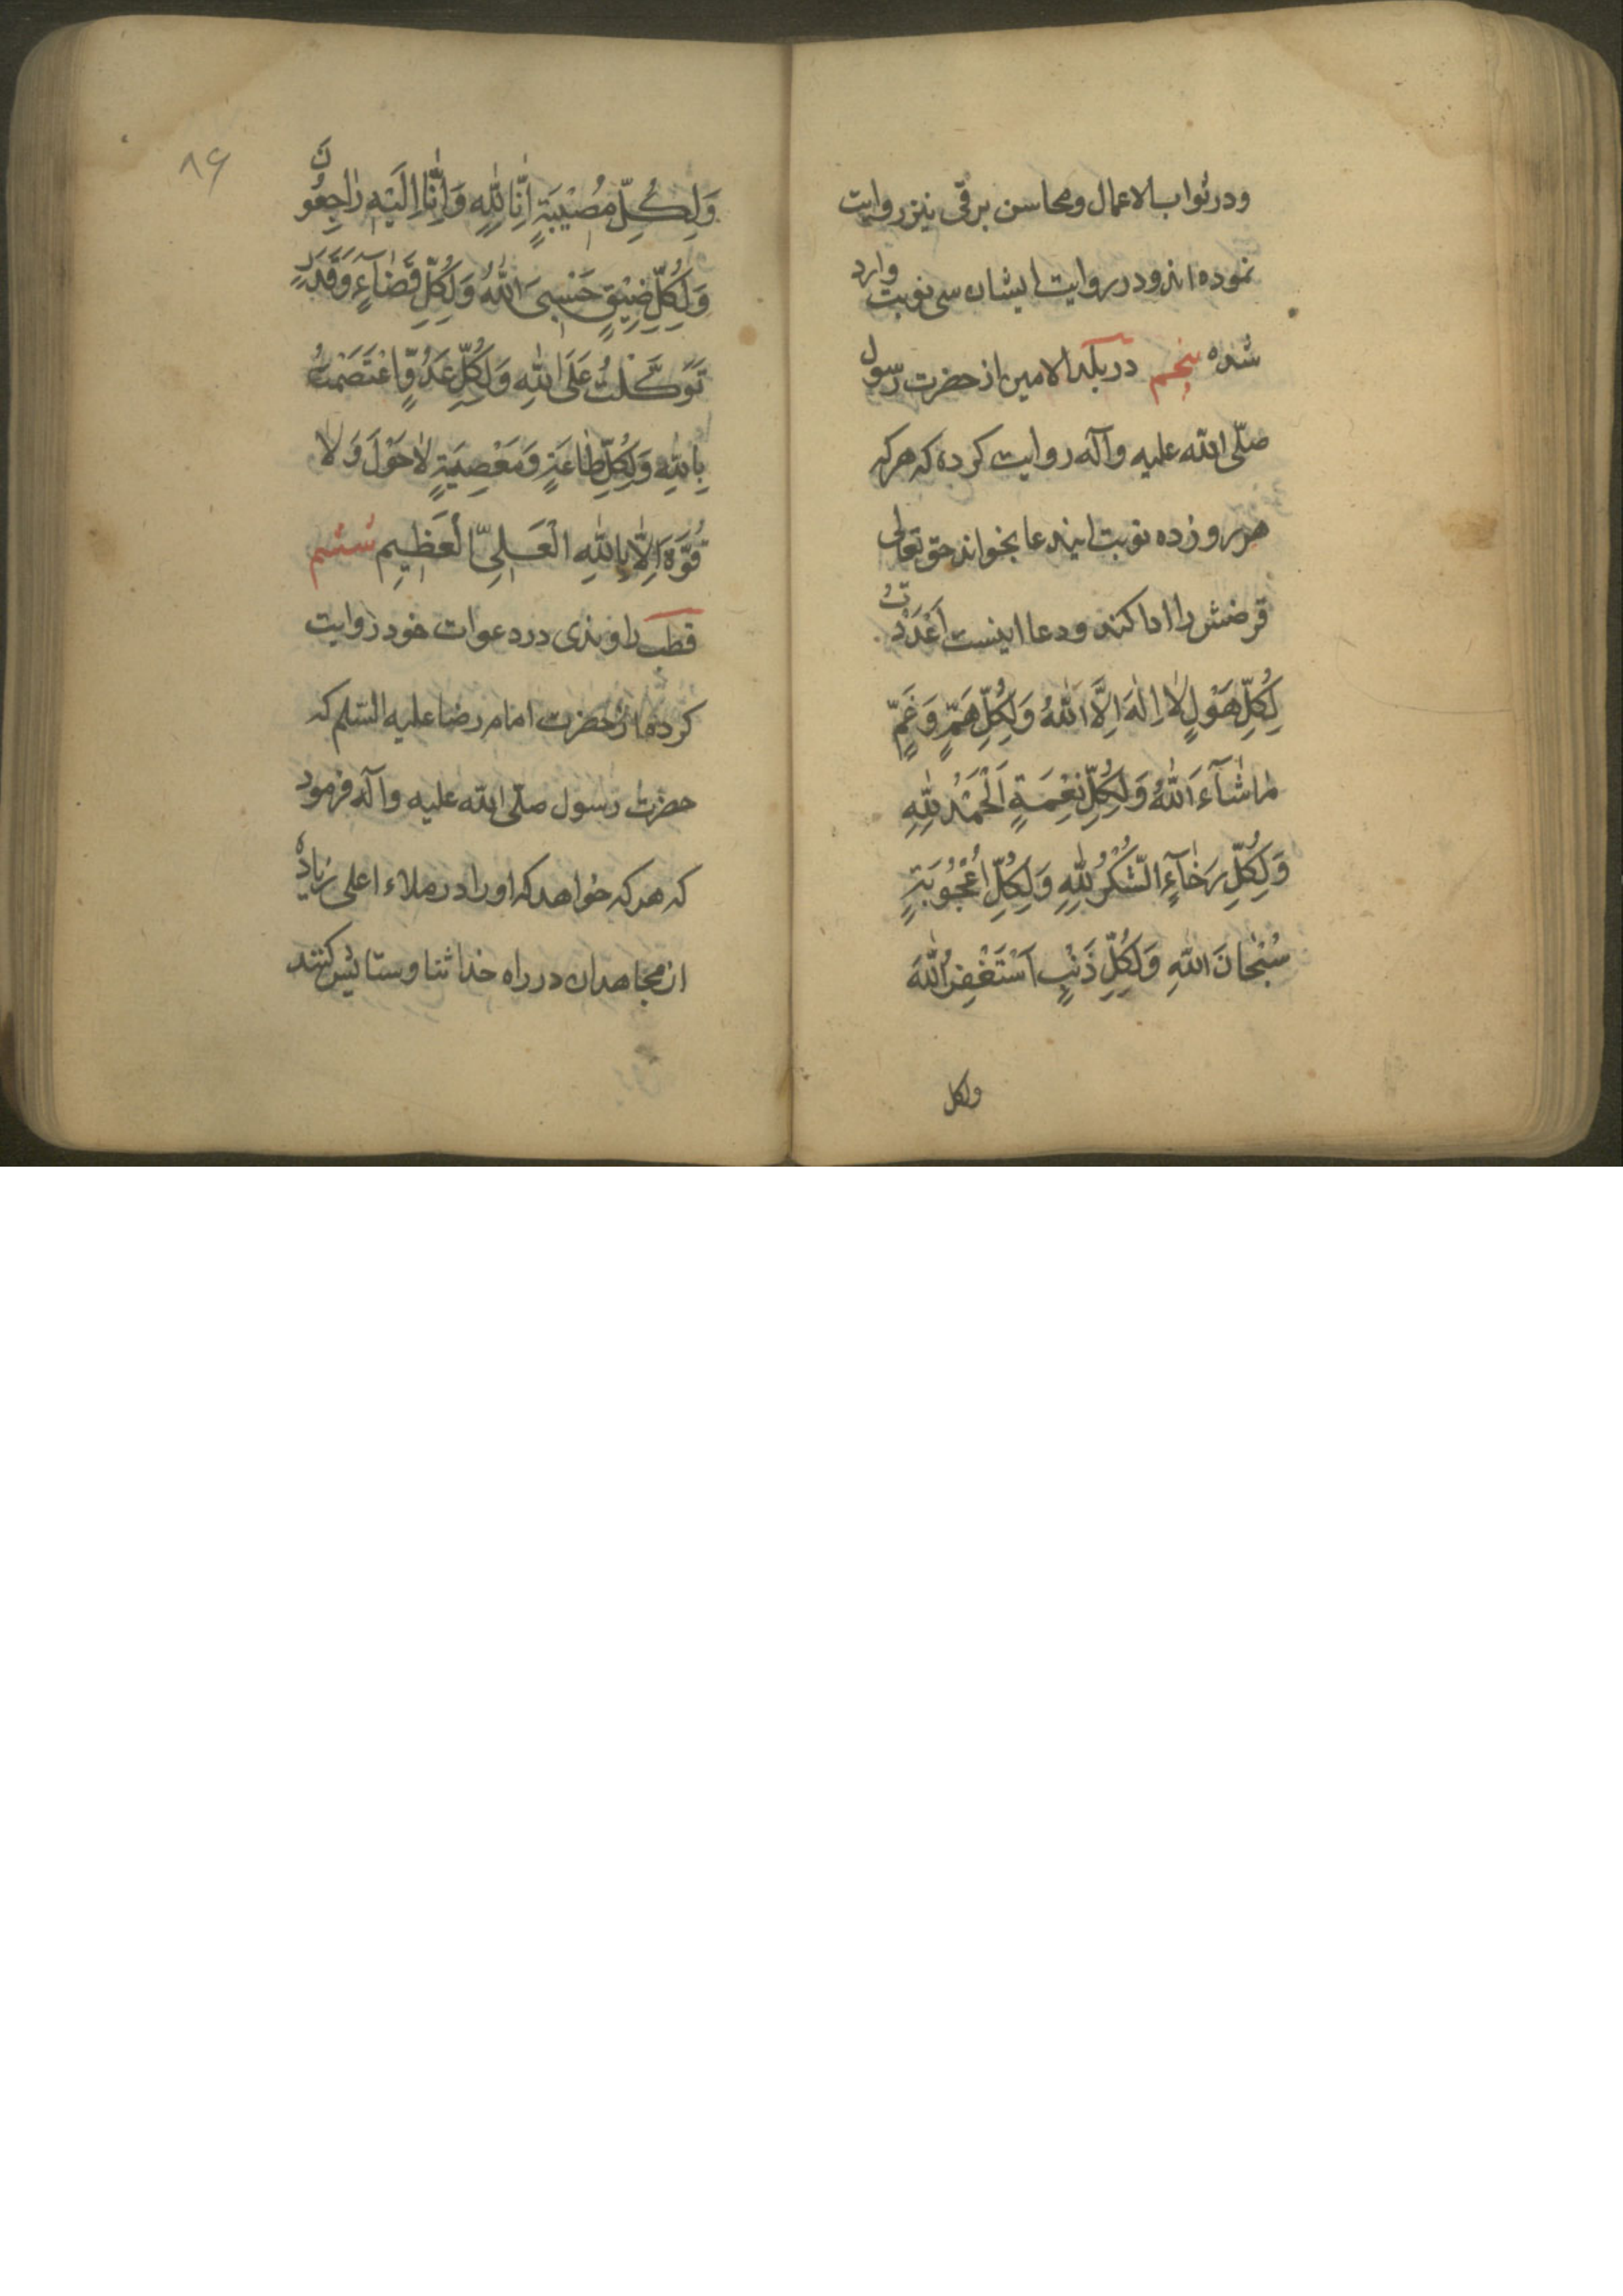 ودر ثواب الاعمال ومحاسن برقی نیز روایت
نموده اند ودر روایت ایشان سی نوبت وارد
شده پنجم در بلد الامین از حضرت رسول
صلّی الله علیه وآله روایت کرده که هر که
هر روز ده نوبت ایندعا بخواند حق تعالی
قرضش را ادا کند ودعا اینست اَعْدَدْتُ
لِکُلِّ هَوْلٍ لٰا اِلٰهَ اِلَّا اللّٰهُ وَلِکُلِّ هَمٍّ وَغَمٍّ
مٰا شٰآءَ اللّٰهُ وَلِکُلِّ نِعْمَةٍ اَلْحَمْدُ لِلّٰهِ
وَلِکُلِّ رَخٰآءٍ الشُّکْرُ لِلّٰهِ وَلِکُلِّ اُعْجُوبَةٍ
سُبْحٰانَ اللّٰهِ وَلِکُلِّ ذَنْبٍ اَسْتَغْفِرُ اللّٰهَ
ولکل
۸۶
وَلِکُلِّ مُصٖیبَةٍ اِنّٰا لِلّٰهِ وَاِنّٰا اِلَیْهِ رٰاجِعُونَ
وَلِکُلِّ ضٖیْقٍ حَسْبِیَ اللّٰهُ وَلِکُلِّ قَضٰآءٍ وَقَدَرٍ
تَوَکَّلْتُ عَلَی اللّٰهِ وَلِکُلِّ عَدُوٍّ اعْتَصَمْتُ
بِاللّٰهِ وَلِکُلِّ طٰاعَةٍ وَمَعْصِیَةٍ لٰا حَوْلَ وَلٰا
قُوَّةَ اِلّٰا بِاللّٰهِ الْعَلِیِّ الْعَظٖیمِ ششم
قطب راوندی در دعوات خود روایت
کرده از حضرت امام رضا علیه السّلم که
حضرت رسول صلّی الله علیه وآله فرمود
که هر که خواهد که او را در ملاء اعلی زیاده
از مجاهدان در راه خدا ثنا وستایش کنند